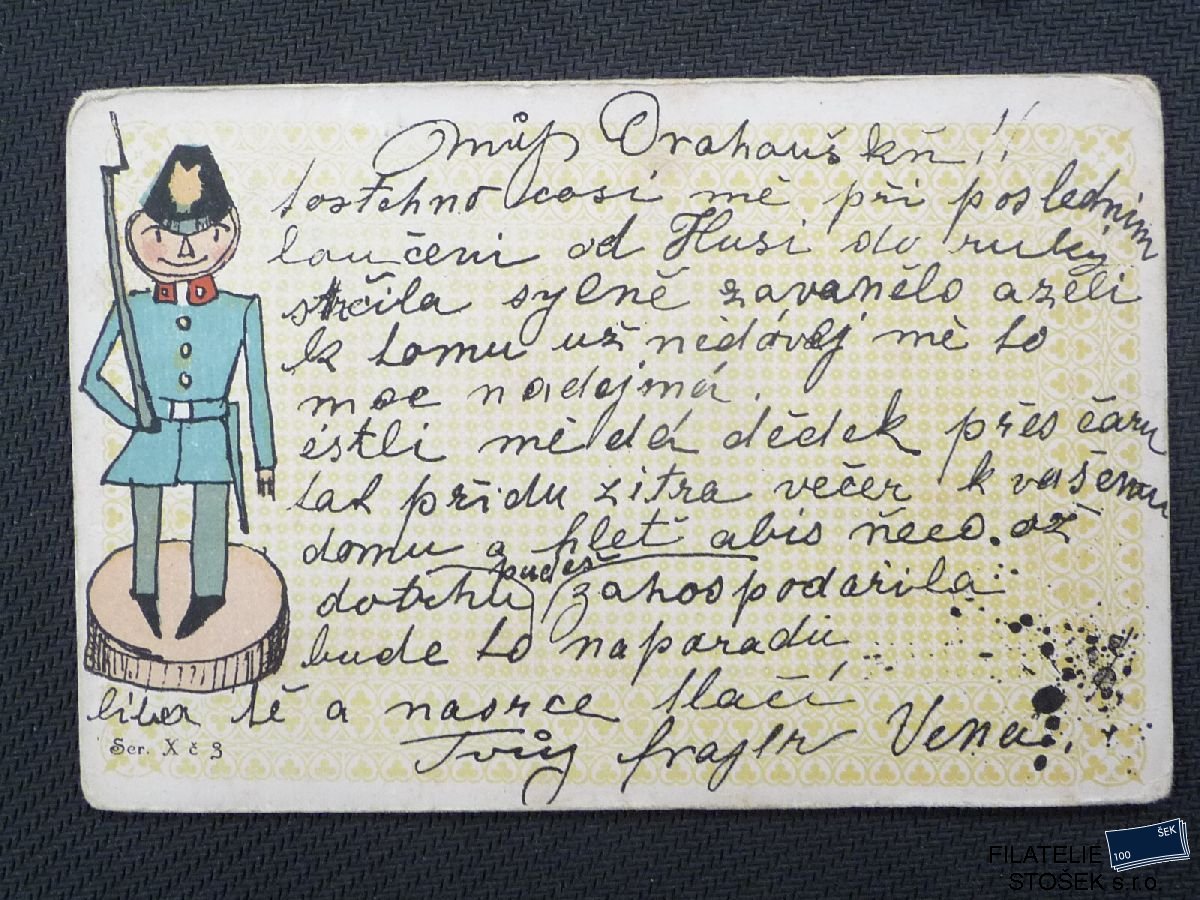 Můj Drahouš kň!!
tostehno cosi mě při posledním
loučeni od Husi do ruky
strčila sylně zavanělo azeli
k tomu už nedóvdj mě to
moc nadejmá.
estli mě dá dědek přes čaru
tak přidu zitra večer k vašemu
domu a hleť abis ňeco. až
pudeš
dotichu zahospodařila
bude to naparadu
liber tě a nasrce tlačí
Tvůj frajer Vena.
Ser. X č 3
FILATELIE
STOŠEK s.r.o.
100 ŠEK